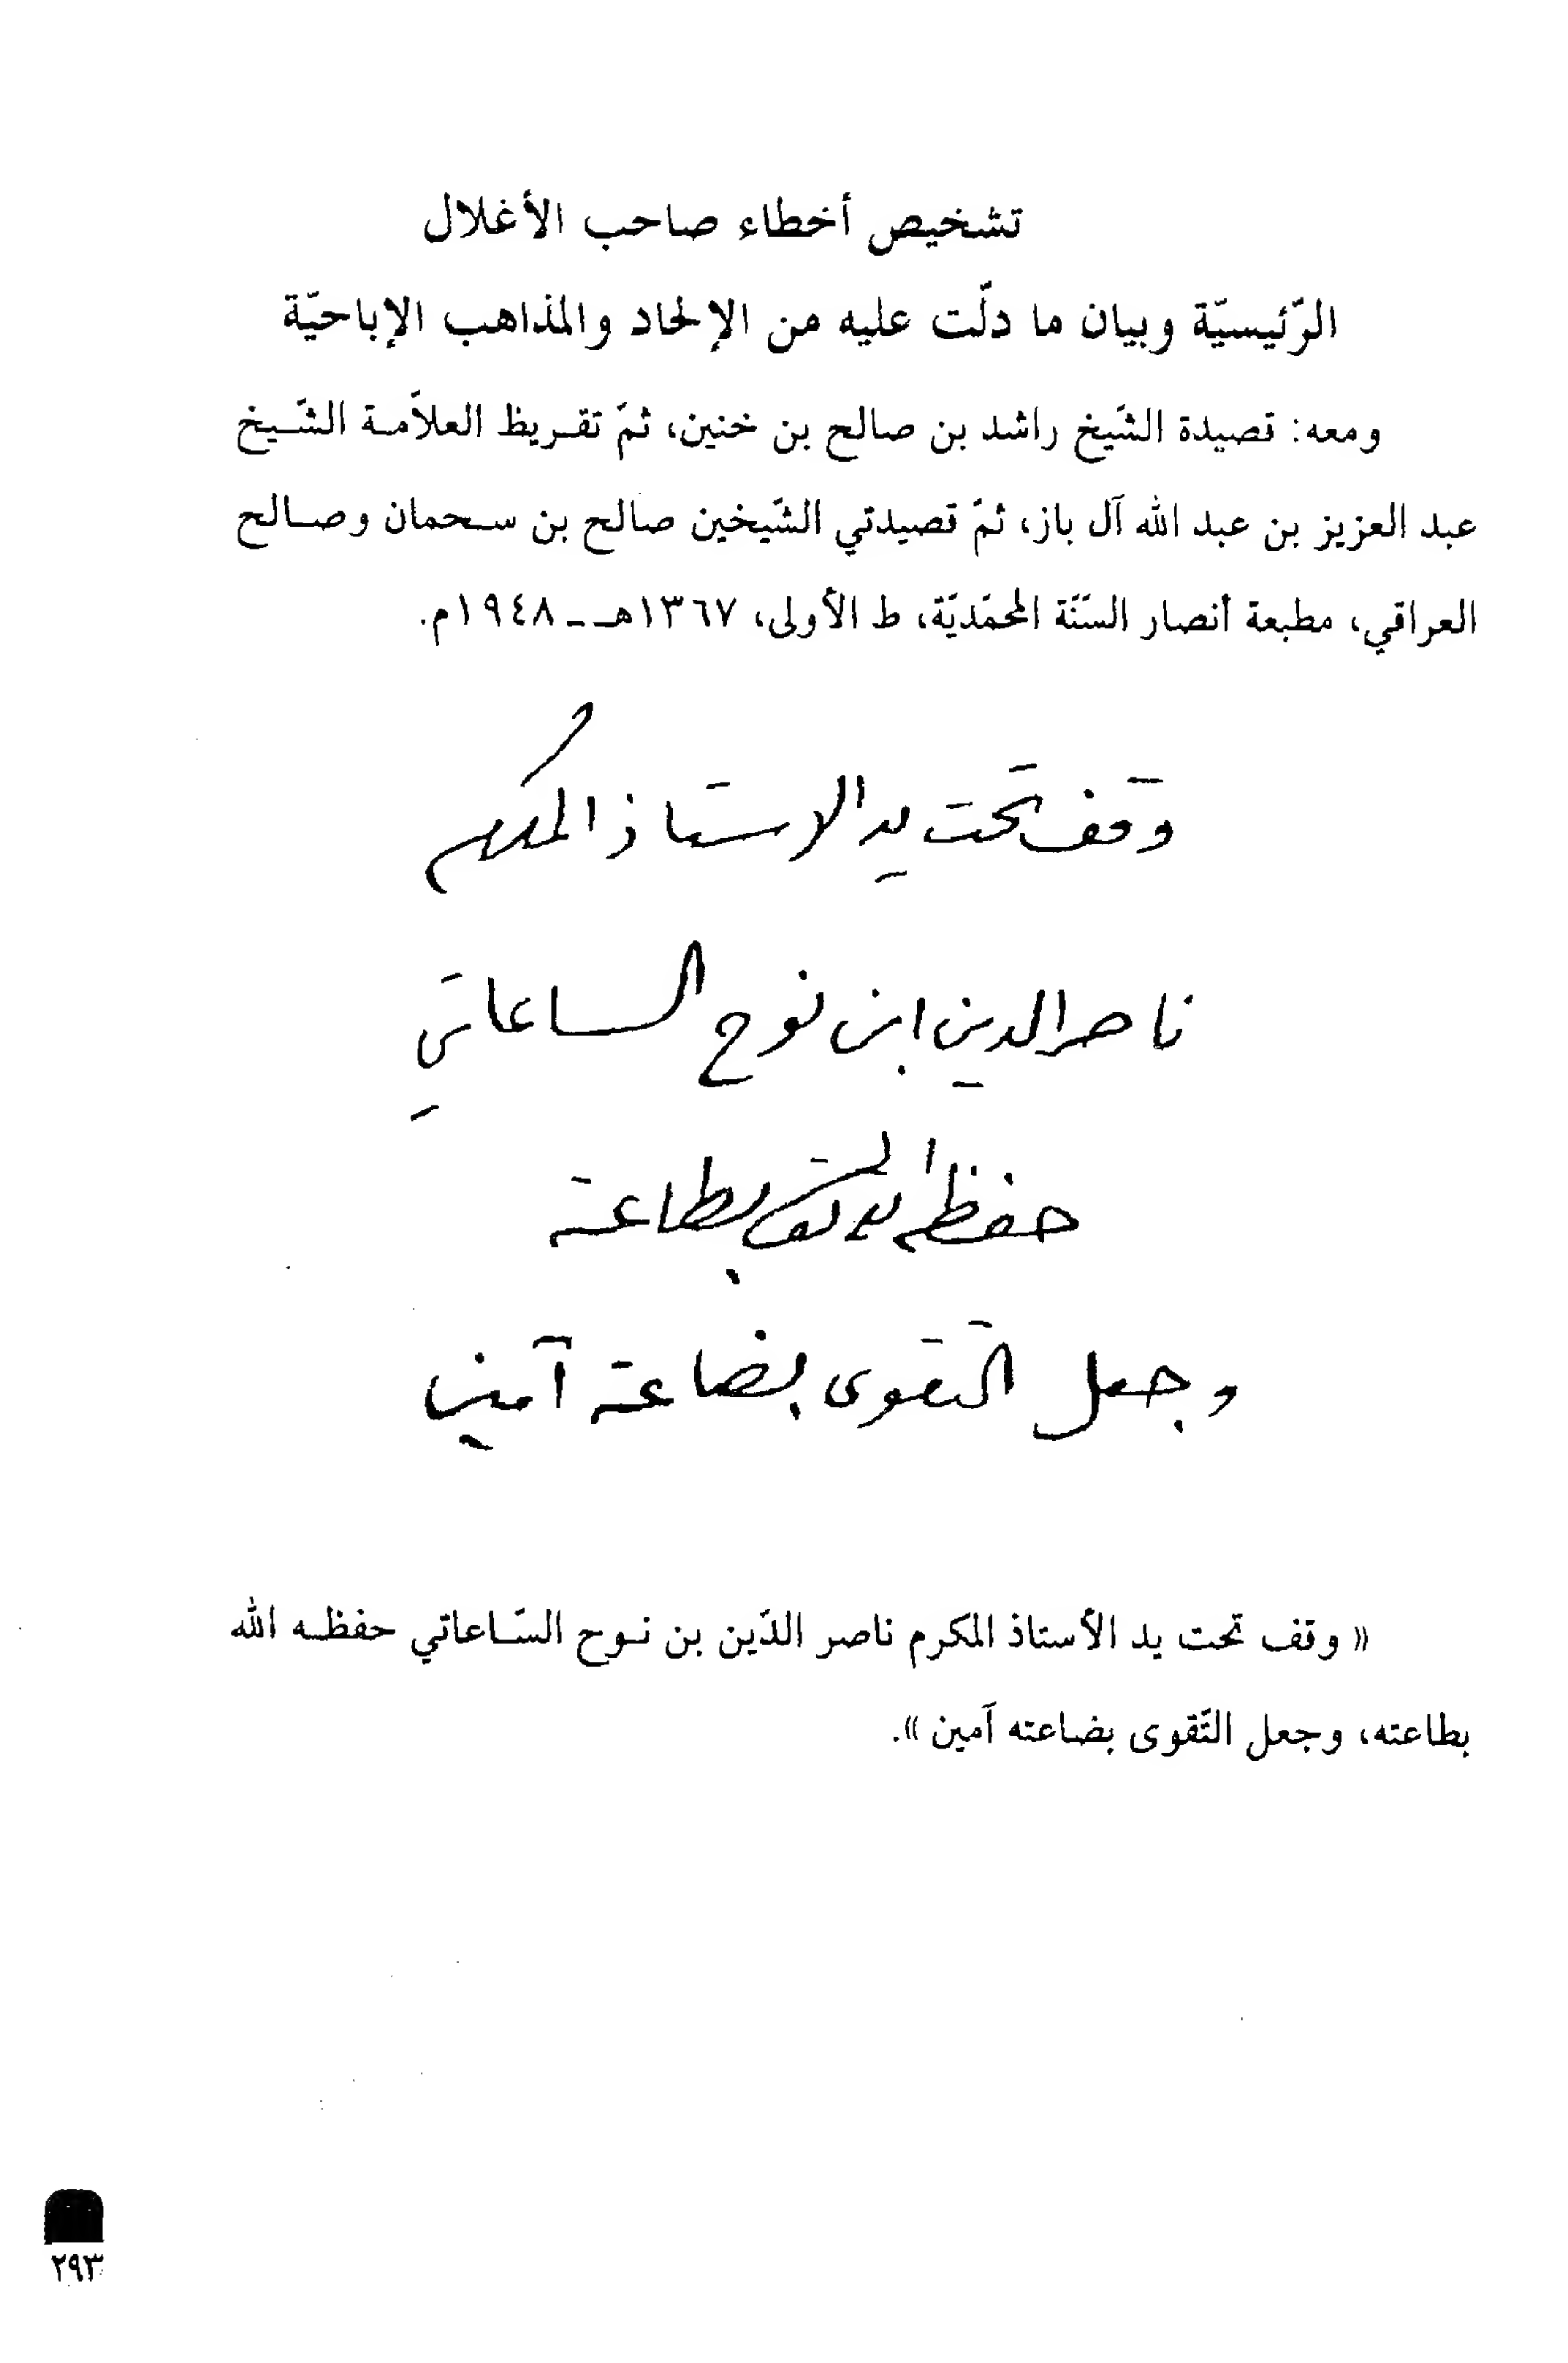 تشخيص أخطاء صاحب الأغلال
الرّئيسيّة وبيان ما دلّت عليه من الإلحاد والمذاهب الإباحيّة
ومعه: قصيدة الشّيخ راشد بن صالح بن خنين، ثمّ تقـريظ العلاّمـة الشّـيخ
عبد العزيز بن عبد الله آل باز، ثمّ قصيدتي الشّيخين صالح بن سـحمان وصـالح
العراقي، مطبعة أنصار السّنّة المحمّديّة، ط الأولى، ١٣٦٧هـ ـ ١٩٤٨م.
وقف تحت يد الاستاذ المكرم
ناصر الدين ابن نوح الساعاتي
حفظه الله بطاعته
وجعل التقوى بضاعته آمين
« وقف تحت يد الأستاذ المكرم ناصر الدّين بن نـوح السّـاعاتي حفظـه الله
بطاعته، وجعل التّقوى بضاعته آمين ».
٢٩٣